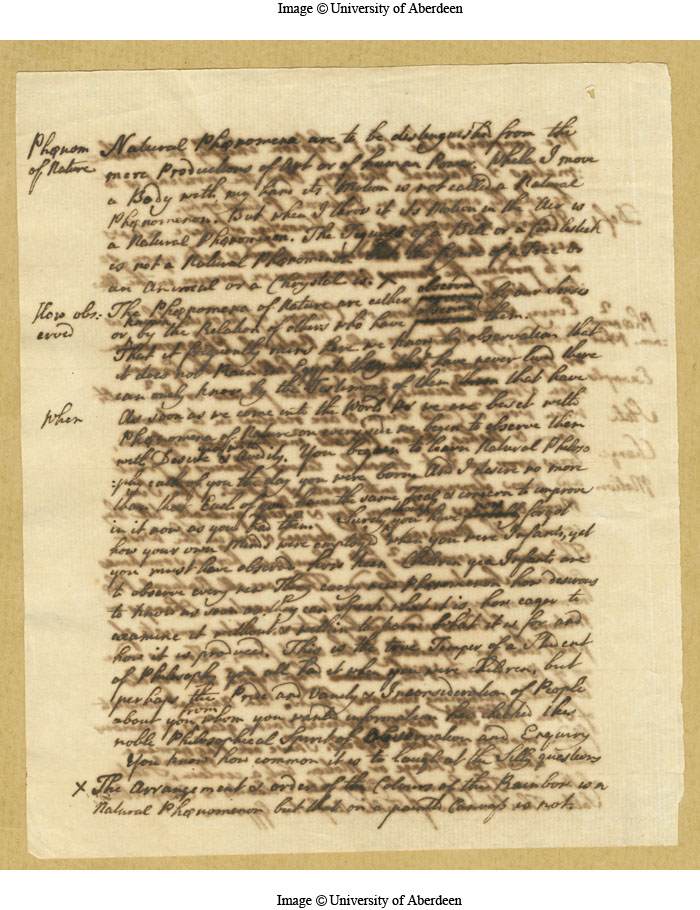 Image © University of Aberdeen
Phænom
of Nature
Natural Phænomena are to be distinguished from the
mere Productions of Art or of human Power. While I move
a Body with my hand its Motion is not called a Natural
Phænomenon. But when I throw it its Motion in the Air is
a Natural Phænomenon. The Figure of a Bell or a Candlestick
is not a Natural Phænomenon but the Figure of a Tree or
an Animal or a Chrystal is. X
How obs:
erved
The Phænomena of Nature are either observed by our Senses
or known by the Relation of others who have them.
That it frequently rains here we know by observation that
it does not Rain in Egypt they that have never lived there
can only know by the Testimony of them that have
When
As soon as we come into the World as we are beset with
Phænomena of Nature on every side we begin to observe them
with Desire & Avidity. You began to learn Natural Philoso
:phy each of you the day you were born And I desire no more
than that Each of you have the same concern to improve
in it now as you had then. Surely you have forgot
how your own minds were employed when you were Infants, yet
you must have observed how keen Children yea Infants are
to observe every new Thing every new Phænomenon how desirous
to know as soon as they can Speak what it is, how eager to
examine it what it is for and
how it is produced. This is the true Temper of a Student
of Philosophy you all had it when you were children, but
perhaps the Pride and Vanity & Inconsideration of People
about you from whom you wanted information has checked this
noble Philosophical Spirit of Observation and Enquiry
You know how common it is to laugh at the Silly questions
X The Arrangement & order of the Colours of the Rainbow is a
Natural Phænomenon but that on a painted Canvass is not.
Image © University of Aberdeen